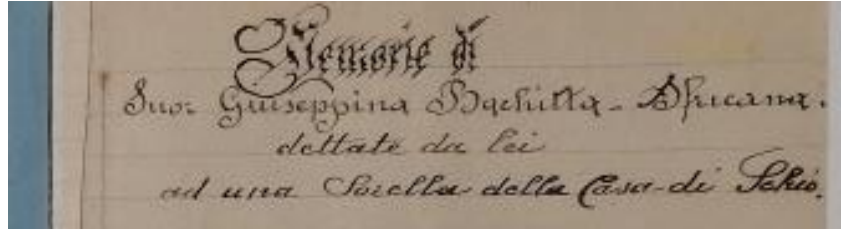 Memorie di
Suor Giuseppina Bachitta - Africana.
dettate da lei
ad una Sorella della Casa di Schio.